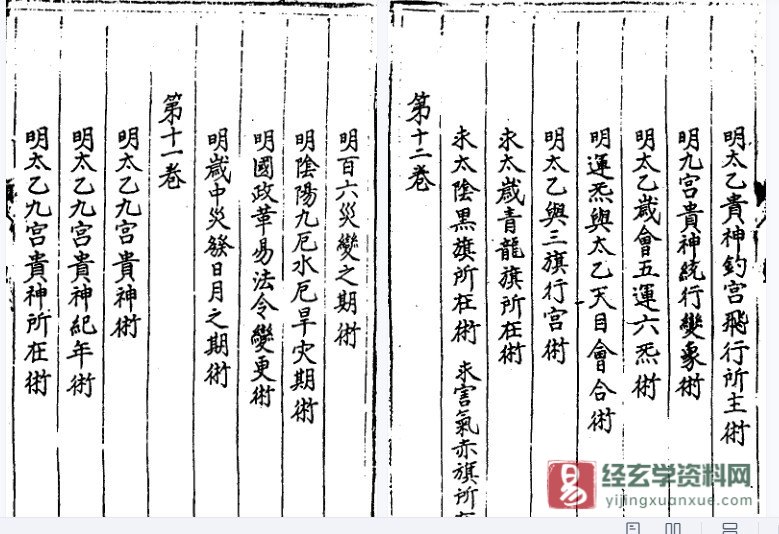 明百六災變之期術
明陰陽九厄水厄旱灾期術
明國政革易法令變更術
明歲中災發日月之期術
第十一卷
明太乙九宫貴神術
明太乙九宫貴神紀年術
明太乙九宫貴神所在術
明太乙貴神釣宫飛行所主術
明九宫貴神統行變象術
明太乙歲會五運六炁術
明運炁與太乙天目會合術
明太乙與三旗行宫術
求太歲青龍旗所在術
求太陰黑旗所在術 求害氣赤旗所
第十二卷
易 经玄学资料网
yijingxuanxue.com